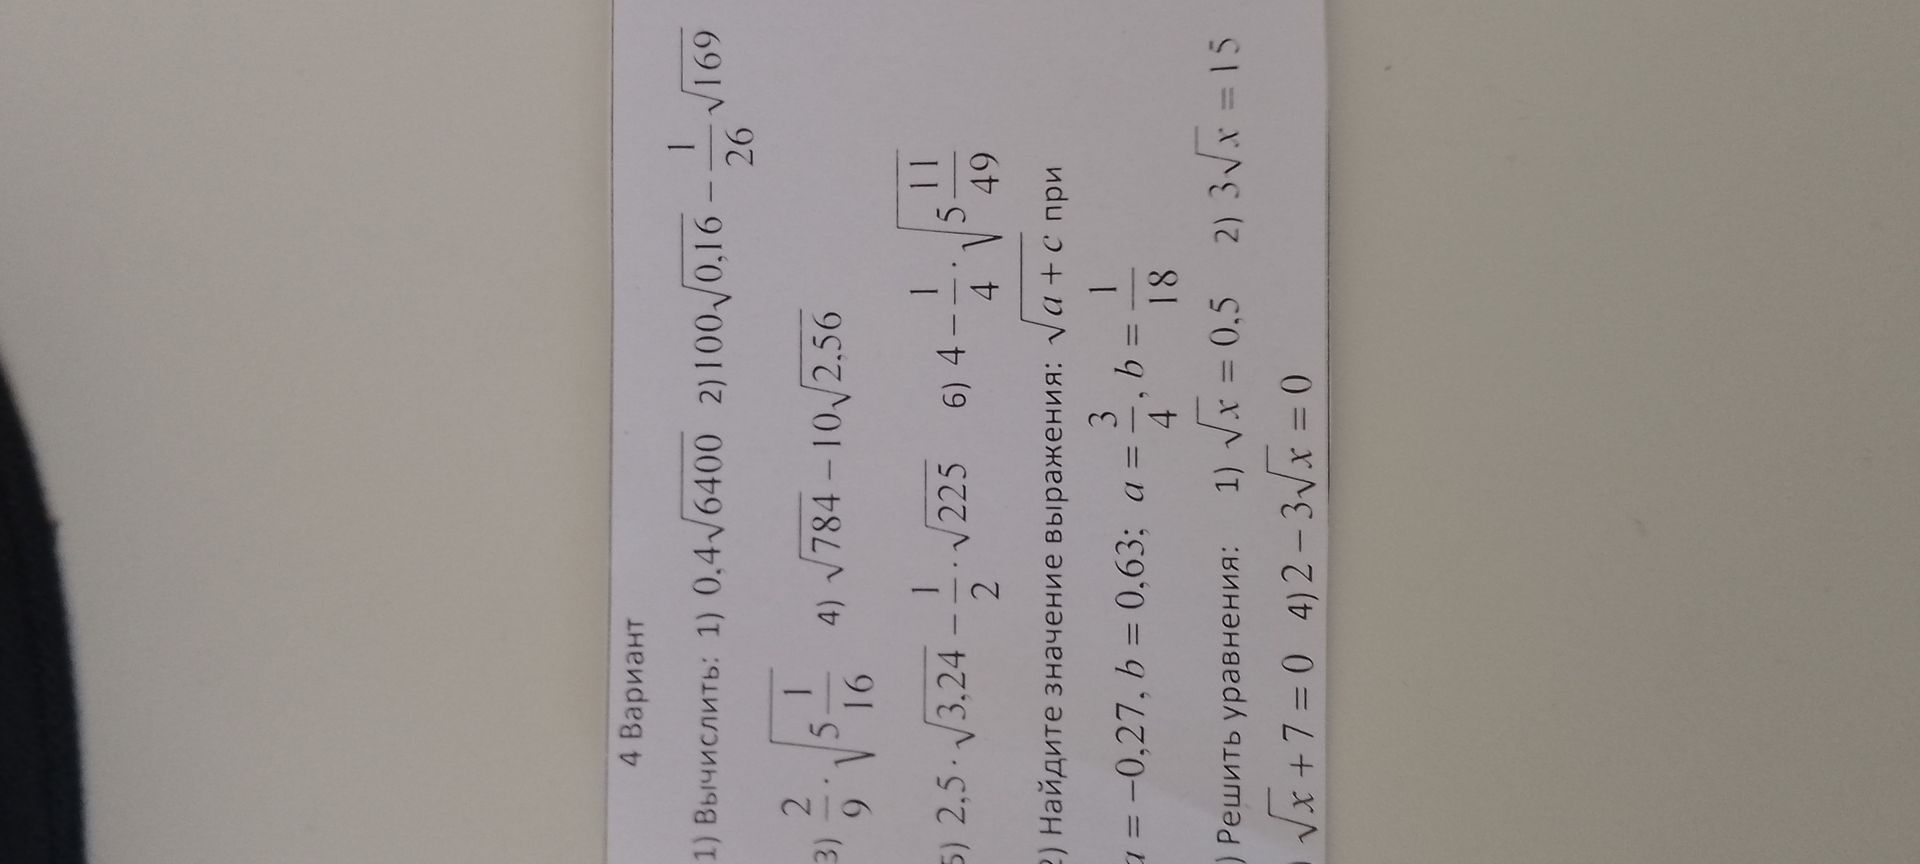 4 Вариант
1) Вычислить: 1) 0,4√6400 2)100√0,16 − 1/26 √169
3) 2/9 · √(5 1/16) 4) √784 − 10√2,56
5) 2,5 · √3,24 − 1/2 · √225 6) 4 − 1/4 · √(5 11/49)
2) Найдите значение выражения: √(a + c) при
a = −0,27, b = 0,63; a = 3/4, b = 1/18
) Решить уравнения: 1) √x = 0,5 2) 3√x = 15
) √x + 7 = 0 4) 2 − 3√x = 0